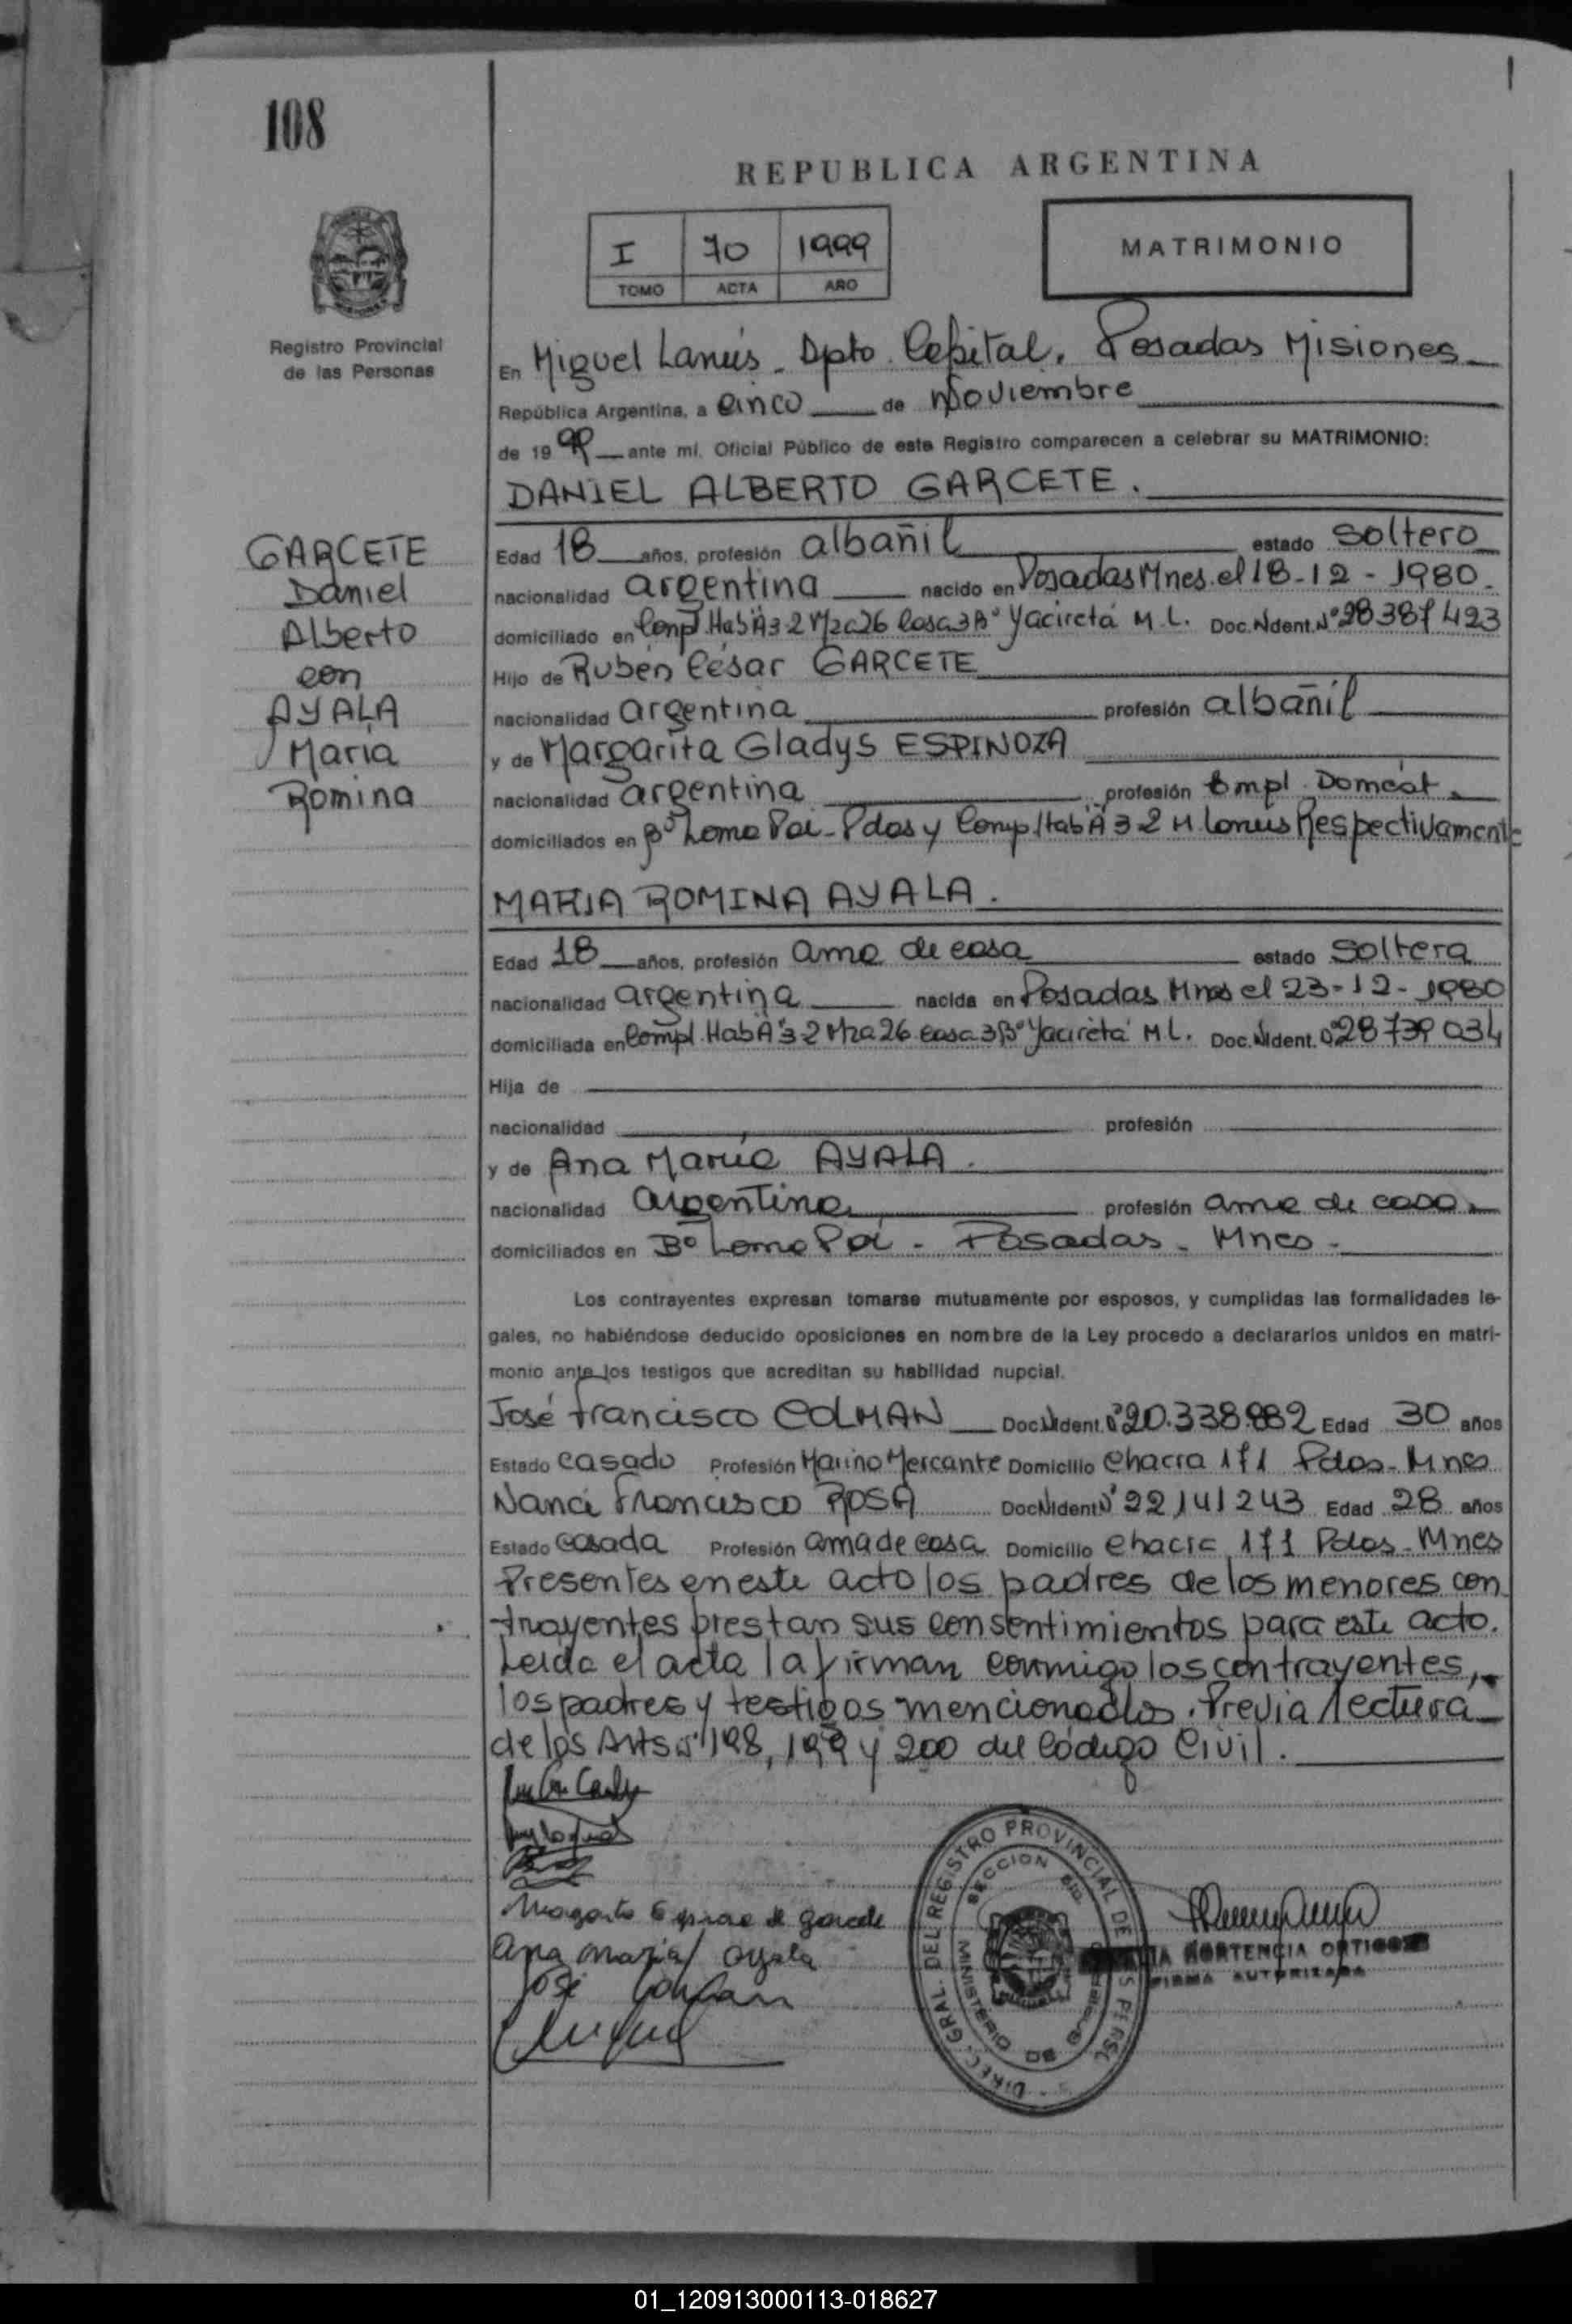 108
REPUBLICA ARGENTINA
I 70 1999
TOMO ACTA AÑO
MATRIMONIO
Registro Provincial
de las Personas
En Miguel Lanús - Dpto. Capital. Posadas Misiones
República Argentina, a cinco de Noviembre
de 1999 ante mí, Oficial Público de este Registro comparecen a celebrar su MATRIMONIO:
DANIEL ALBERTO GARCETE.
GARCETE
Daniel
Alberto
con
AYALA
María
Romina
Edad 18 años, profesión albañil estado soltero
nacionalidad argentina nacido en Posadas Mnes. el 18-12-1980.
domiciliado en Compl. Hab A3-2 Mza 26 Casa 3 Bº Yaciretá M.L. Doc. Ident. Nº 28387423
Hijo de Rubén César GARCETE
nacionalidad argentina profesión albañil
y de Margarita Gladys ESPINOZA
nacionalidad argentina profesión Empl. Domést.
domiciliados en Bº Loma Poi - Pdas y Comp Hab A 3-2 M. Lanús Respectivamente
MARIA ROMINA AYALA.
Edad 18 años, profesión ama de casa estado soltera
nacionalidad argentina nacida en Posadas Mnes el 23-12-1980
domiciliada en Compl. Hab A 3-2 Mza 26 casa 3 Bº Yaciretá M.L. Doc. Ident. Nº 28739034
Hija de
nacionalidad profesión
y de Ana María AYALA.
nacionalidad argentina profesión ama de casa
domiciliados en Bº Loma Poi - Posadas - Mnes -
Los contrayentes expresan tomarse mutuamente por esposos, y cumplidas las formalidades le-
gales, no habiéndose deducido oposiciones en nombre de la Ley procedo a declararlos unidos en matri-
monio ante los testigos que acreditan su habilidad nupcial.
José Francisco COLMAN Doc. Ident. Nº 20.338.882 Edad 30 años
Estado casado Profesión Marino Mercante Domicilio Chacra 171 Pdas - Mnes
Nanci Francisco ROSA Doc. Ident. Nº 22141243 Edad 28 años
Estado casada Profesión ama de casa Domicilio Chacra 171 Pdas - Mnes
Presentes en este acto los padres de los menores con
trayentes prestan sus consentimientos para este acto.
Leída el acta la firman conmigo los contrayentes,
los padres y testigos mencionados. Previa lectura
de los Arts Nº 198, 199 y 200 del Código Civil.
Margarita Espinoza de Garcete
Ana María Ayala
José Colman
DIREC. GRAL. DEL REGISTRO PROVINCIAL DE LAS PERS
SECCION
MINISTERIO DE GOBIERNO
HORTENCIA ORTIGOZA
FIRMA AUTORIZADA
01_120913000113-018627